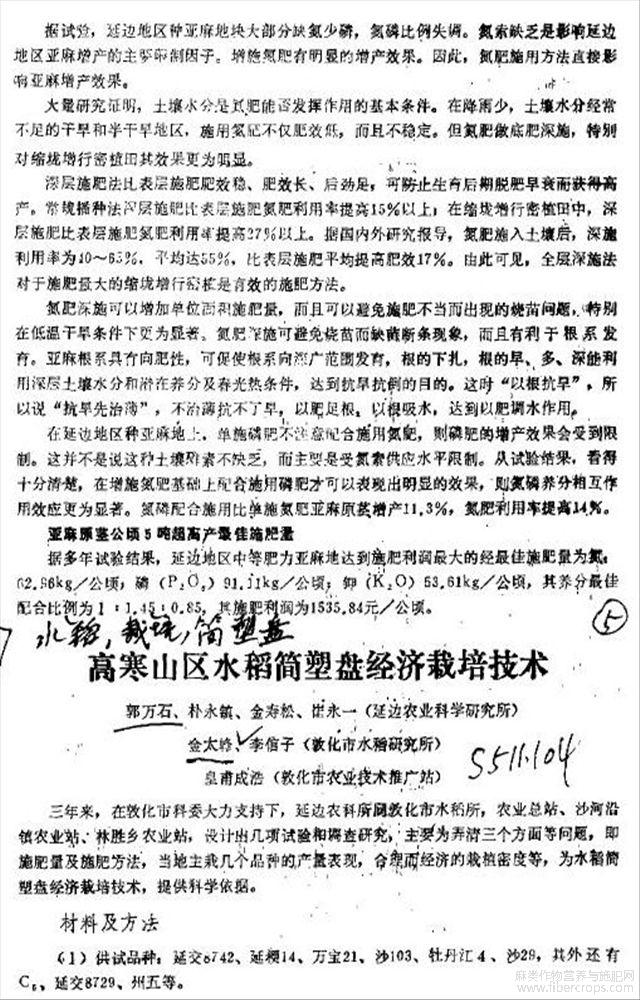 据试验，延边地区种亚麻地块大部分缺氮少磷，氮磷比例失调。氮素缺乏是影响延边
地区亚麻增产的主要限制因子。增施氮肥有明显的增产效果。因此，氮肥施用方法直接影
响亚麻增产效果。
大量研究证明，土壤水分是氮肥能否发挥作用的基本条件。在降雨少，土壤水分经常
不足的干旱和半干旱地区，施用氮肥不仅肥效低，而且不稳定。但氮肥做底肥深施，特别
对缩垅增行密植田其效果更为明显。
深层施肥法比表层施肥肥效稳、肥效长、后劲足，可防止生育后期脱肥早衰而获得高
产。常规播种法深层施肥比表层施肥氮肥利用率提高15％以上；在缩垅增行密植田中，深
层施肥比表层施肥氮肥利用率提高27％以上。据国内外研究报导，氮肥施入土壤后，深施
利用率为40～65％，平均达55％，比表层施肥平均提高肥效17％。由此可见，全层深施法
对于施肥量大的缩垅增行密植是有效的施肥方法。
氮肥深施可以增加单位面积施肥量，而且可以避免施肥不当而出现的烧苗问题，特别
在低温干旱条件下更为显著。氮肥深施可避免烧苗而缺苗断条现象，而且有利于根系发
育。亚麻根系具有向肥性，可促使根系向深广范围发育，根的下扎，根的早、多、深能利
用深层土壤水分和潜在养分及春光热条件，达到抗旱抗倒的目的。这叫“以根抗旱”，所
以说“抗旱先治薄”，不治薄抗不了旱，以肥足根，以根吸水，达到以肥调水作用。
在延边地区种亚麻地上，单施磷肥不注意配合施用氮肥，则磷肥的增产效果会受到限
制。这并不是说这种土壤磷素不缺乏，而主要是受氮素供应水平限制。从试验结果，看得
十分清楚，在增施氮肥基础上配合施用磷肥才可以表现出明显的效果，则氮磷养分相互作
用效应更为显著。氮磷配合施用比单施氮肥亚麻原茎增产11.3％，氮肥利用率提高14％。
亚麻原茎公顷5吨超高产最佳施肥量
据多年试验结果，延边地区中等肥力亚麻地达到施肥利润最大的经最佳施肥量为氮：
62.96kg／公顷；磷（P₂O₅）91.11kg／公顷；钾（K₂O）53.61kg／公顷，其养分最佳
配合比例为1：1.45：0.85，其施肥利润为1535.84元／公顷。
⑤
水稻，栽培，简塑盘
高寒山区水稻简塑盘经济栽培技术
郭万石、朴永镇、金寿松、崔永一（延边农业科学研究所）
金太峰、李信子（敦化市水稻研究所）
皇甫成浩（敦化市农业技术推广站）
S511.104
三年来，在敦化市科委大力支持下，延边农科所同敦化市水稻所，农业总站、沙河沿
镇农业站、林胜乡农业站，设计出几项试验和调查研究，主要为弄清三个方面等问题，即
施肥量及施肥方法，当地主栽几个品种的产量表现，合理而经济的栽植密度等，为水稻简
塑盘经济栽培技术，提供科学依据。
材料及方法
（1）供试品种：延交8742、延粳14、万宝21、沙103、牡丹江4、沙29，其外还有
C₆，延交8729、州五等。
麻类作物营养与施肥网
www.fibercrops.com